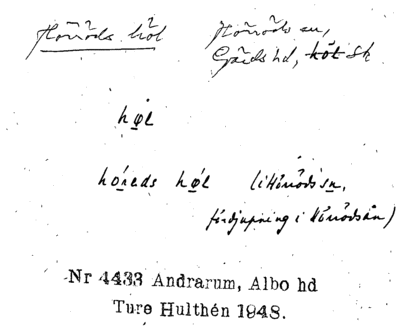 Hörröds höl
Hörröds sn,
Gärds hd, höl Sk
hø̣l
hó̱reds hǿ̱l (i Hörröds sn,
fördjupning i Hörrödsån)
Nr 4433 Andrarum, Albo hd
Ture Hulthén 1948.